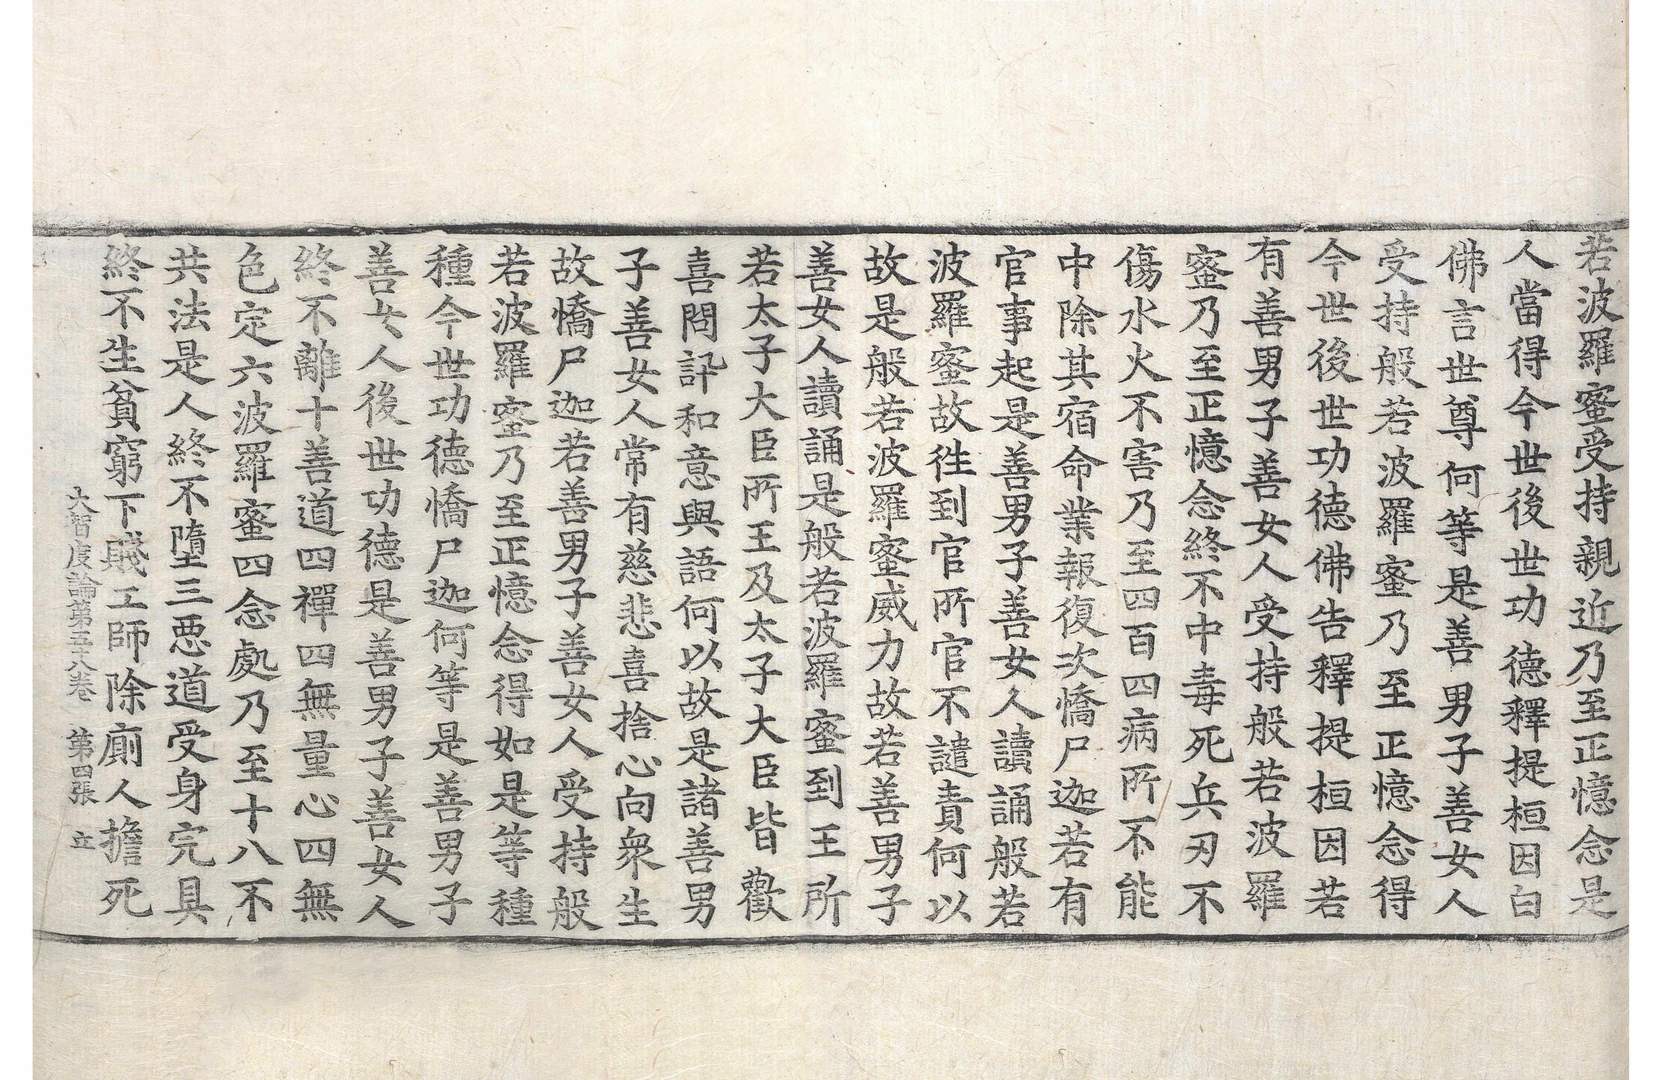 若波羅蜜受持親近乃至正憶念是
人當得今世後世功德釋提桓因白
佛言世尊何等是善男子善女人
受持般若波羅蜜乃至正憶念得
今世後世功德佛告釋提桓因若
有善男子善女人受持般若波羅
蜜乃至正憶念終不中毒死兵刃不
傷水火不害乃至四百四病所不能
中除其宿命業報復次憍尸迦若有
官事起是善男子善女人讀誦般若
波羅蜜故徃到官所官不譴責何以
故是般若波羅蜜威力故若善男子
善女人讀誦是般若波羅蜜到王所
若太子大臣所王及太子大臣皆歡
喜問訊和意與語何以故是諸善男
子善女人常有慈悲喜捨心向衆生
故憍尸迦若善男子善女人受持般
若波羅蜜乃至正憶念得如是等種
種今世功德憍尸迦何等是善男子
善女人後世功德是善男子善女人
終不離十善道四禪四無量心四無
色定六波羅蜜四念處乃至十八不
共法是人終不墮三惡道受身完具
終不生貧窮下賤工師除廁人擔死
大智度論第五十八卷 第四張 立